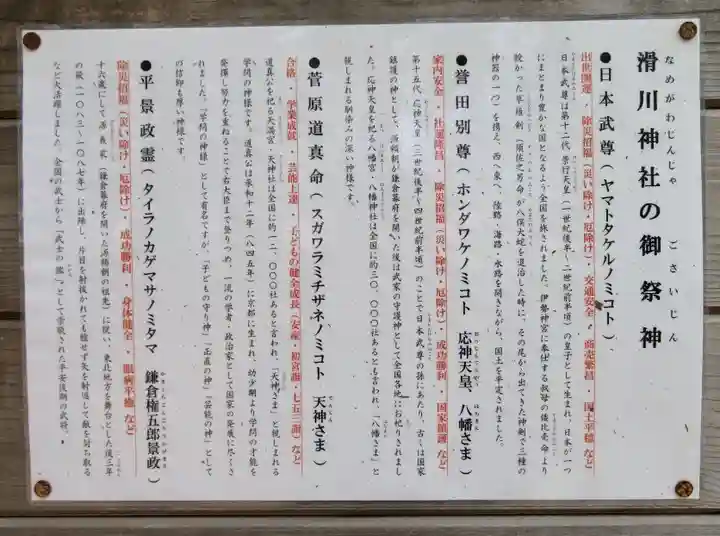 滑川神社の御祭神
なめがわじんじゃ ごさいじん
●日本武尊(ヤマトタケルノミコト)
出世開運・除災招福(災い除け・厄除け)・交通安全・商売繁昌・国土平穏 など
日本武尊は第十二代 景行天皇(一世紀後半~二世紀前半頃)の皇子として生まれ、日本が一つ
にまとまり豊かな国となるよう全国を旅されました。伊勢神宮に奉仕する叔母の倭比売命より
授かった草薙剣(須佐之男命が八俣大蛇を退治した時に、その尾から出てきた神剣で三種の
神器の一つ)を携え、西へ東へ、陸路・海路・水路を開きながら、国土を平定されました。
●誉田別尊(ホンダワケノミコト 応神天皇、八幡さま)
おうじんてんのう はちまん
家内安全・社運隆昌・除災招福(災い除け・厄除け)・成功勝利・国家鎮護 など
第十五代 応神天皇(三世紀後半~四世紀前半頃)のことで日本武尊の孫にあたり、古くは国家
鎮護の神として、源頼朝が鎌倉幕府を開いた後は武家の守護神として全国各地にお祀りされまし
た。応神天皇を祀る八幡宮・八幡神社は全国に約三〇、〇〇〇社あるとも言われ、「八幡さま」と
親しまれる馴染みの深い神様です。
●菅原道真命(スガワラミチザネノミコト 天神さま)
てんじん
合格・学業成就・芸能上達・子どもの健全成長(安産・初宮詣・七五三詣)など
道真公を祀る天満宮・天神社は全国に約一二、〇〇〇社あると言われ、「天神さま」と親しまれる
学問の神様です。道真公は承和十二年(八四五年)に京都に生まれ、幼少期より学問の才能を
発揮し努力を重ねることで右大臣まで登りつめ、一流の学者・政治家として国家の発展に尽くさ
れました。「学問の神様」として有名ですが、「子どもの守り神」「正直の神」「芸能の神」として
の信仰も厚い神様です。
●平景政霊(タイラノカゲマサノミタマ 鎌倉権五郎景政)
かまくらごんごろうかげまさ
除災招福(災い除け・厄除け)・成功勝利・身体健全・眼病平癒 など
十六歳にして源義家(鎌倉幕府を開いた源頼朝の祖先)に従い、東北地方を舞台とした後三年
の役(一〇八三~一〇八七年)に出陣し、片目を射抜かれても怯せず矢を射返して敵を討ち取る
など大活躍しました。全国の武士から「武士の鑑」として崇敬された平安後期の武将。